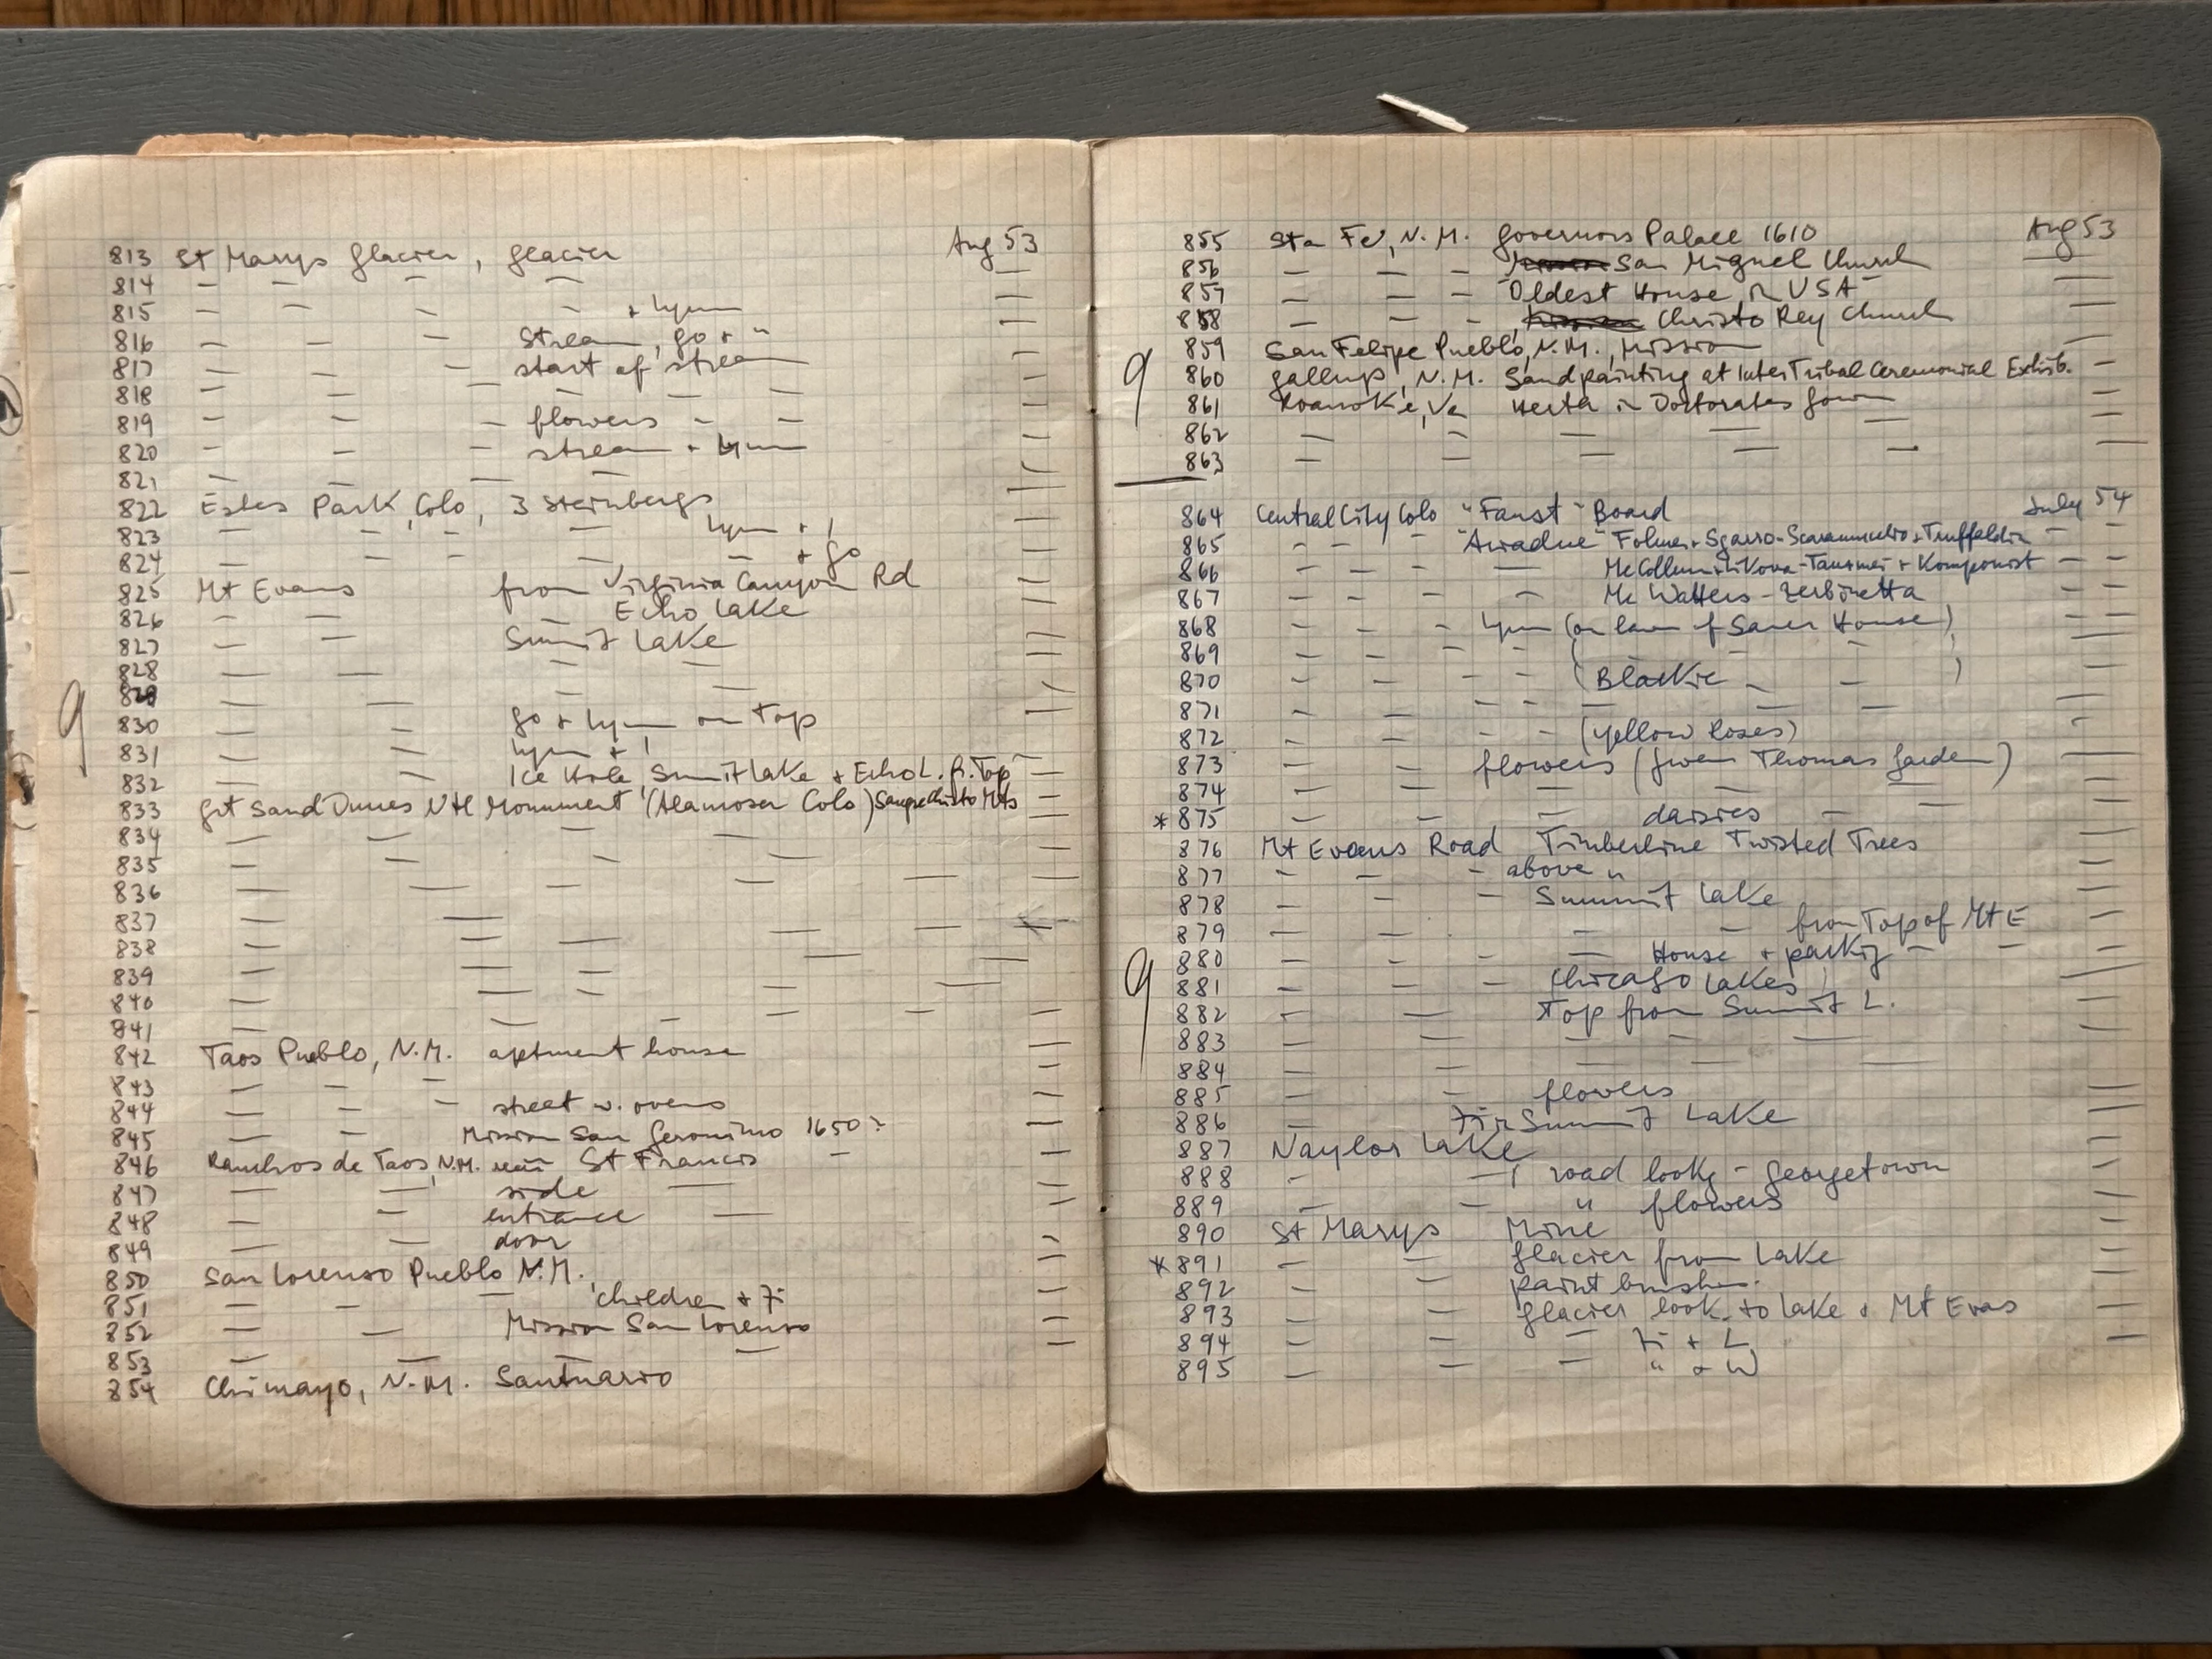 813 St Marys Glacier, glacier Aug 53
814 — — — — —
815 — — — — + Lynn —
816 — — — Stream, Go + " —
817 — — — start of stream —
818 — — — — — — —
819 — — — flowers — — —
820 — — — stream + Lynn —
821 — — — — —
822 Estes Park, Colo, 3 Steinbergs —
823 — — — — Lynn + I —
824 — — — — — + Go —
825 Mt Evans from Virginia Canyon Rd —
826 — — — Echo Lake —
827 — — Summit Lake —
828 — — — — —
829 — — — — —
830 — — Go + Lynn on Top —
831 — — Lynn + I —
832 — — Ice Hole, Summit Lake + Echo L. fr. Top —
833 Grt Sand Dunes Ntl Monument (Alamosa Colo) Sangre Christo Mts —
834 — — — — —
835 — — — — —
836 — — — — — —
837 — — —
838 — — — — —
839 — — — —
840 — — — — —
841 — — — — — —
842 Taos Pueblo, N.M. aptment house —
843 — — — —
844 — — — street w. ovens —
845 — — Mission San Geronimo 1650? —
846 Ranchos de Taos, N.M. St Francis — —
847 — — side — —
848 — — entrance — —
849 — — door —
850 San Lorenso Pueblo N.M. —
851 — — — children + Fi —
852 — — Mission San Lorenso —
853 — — — — —
854 Chimayo, N.M. Santuario
855 Sta Fe, N.M. Governors Palace 1610 Aug 53
856 — — — San Miguel Church —
857 — — — Oldest House in USA —
858 — — — Christo Rey Church —
859 San Felipe Pueblo, N.M., Mission —
9 860 Gallup, N.M. Sandpainting at InterTribal Ceremonial Exhib. —
861 Roanoke, Va Herta in Doctorates Gown —
862 — — — — — —
863 — — — — —
864 Central City Colo "Faust" Board July 54
865 — — — "Ariadne" Folmer + Sgarro - Scaramuccio + Truffaldin — —
866 — — — — McCollum + Likova - Tanzmei + Komponist — —
867 — — — — Mc Watters - Zerbinetta — —
868 — — — Lynn (on lawn of Sauer House) — —
869 — — — — ( — — ) —
870 — — — — (Blackie — — ) —
871 — — — — — — — —
872 — — — — (yellow roses) —
873 — — flowers (from Thomas Garden) —
874 — — — — —
* 875 — — — daisies — —
876 Mt Evans Road Timberline Twisted Trees —
877 — — — above " —
878 — — — Summit Lake —
879 — — — — from Top of Mt E —
880 — — — — House + parkig — —
9 881 — — — Chicago Lakes —
882 — — Top from Summit L. —
883 — — — — — —
884 — — — — — —
885 — — flowers —
886 — Fi in Summit Lake —
887 Naylor Lake —
888 — — road lookg - Georgetown —
889 — — " flowers —
890 St Marys Mine —
* 891 — — glacier from Lake —
892 — — paint brushes. —
893 — — glacier look. to lake + Mt Evans —
894 — — — Fi + L —
895 — — — " + W
9